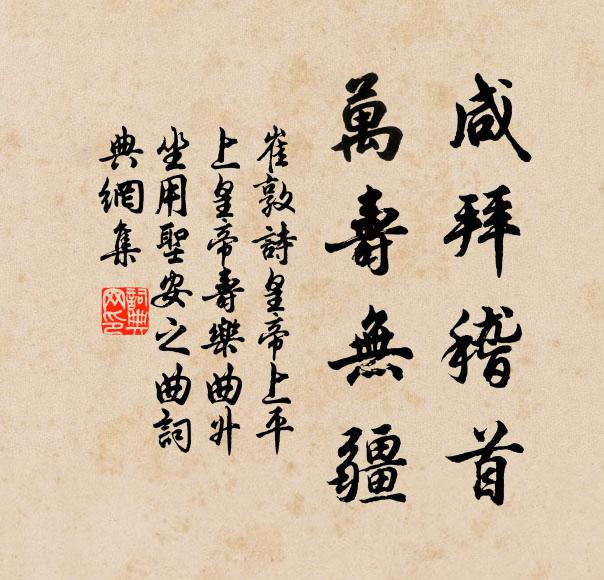 咸拜稽首
萬壽無疆
崔敦詩皇帝上平
上皇帝壽樂曲升
坐用聖安之曲詞
典網集
詞典
网印